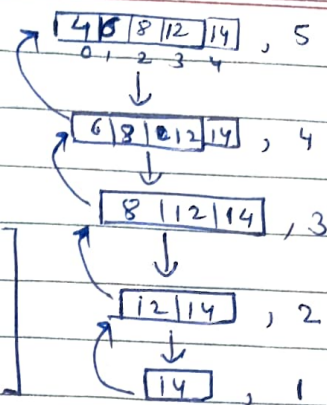 4 6 8 12 14 , 5
0 1 2 3 4
6 8 12 14 , 4
8 12 14 , 3
12 14 , 2
14 , 1